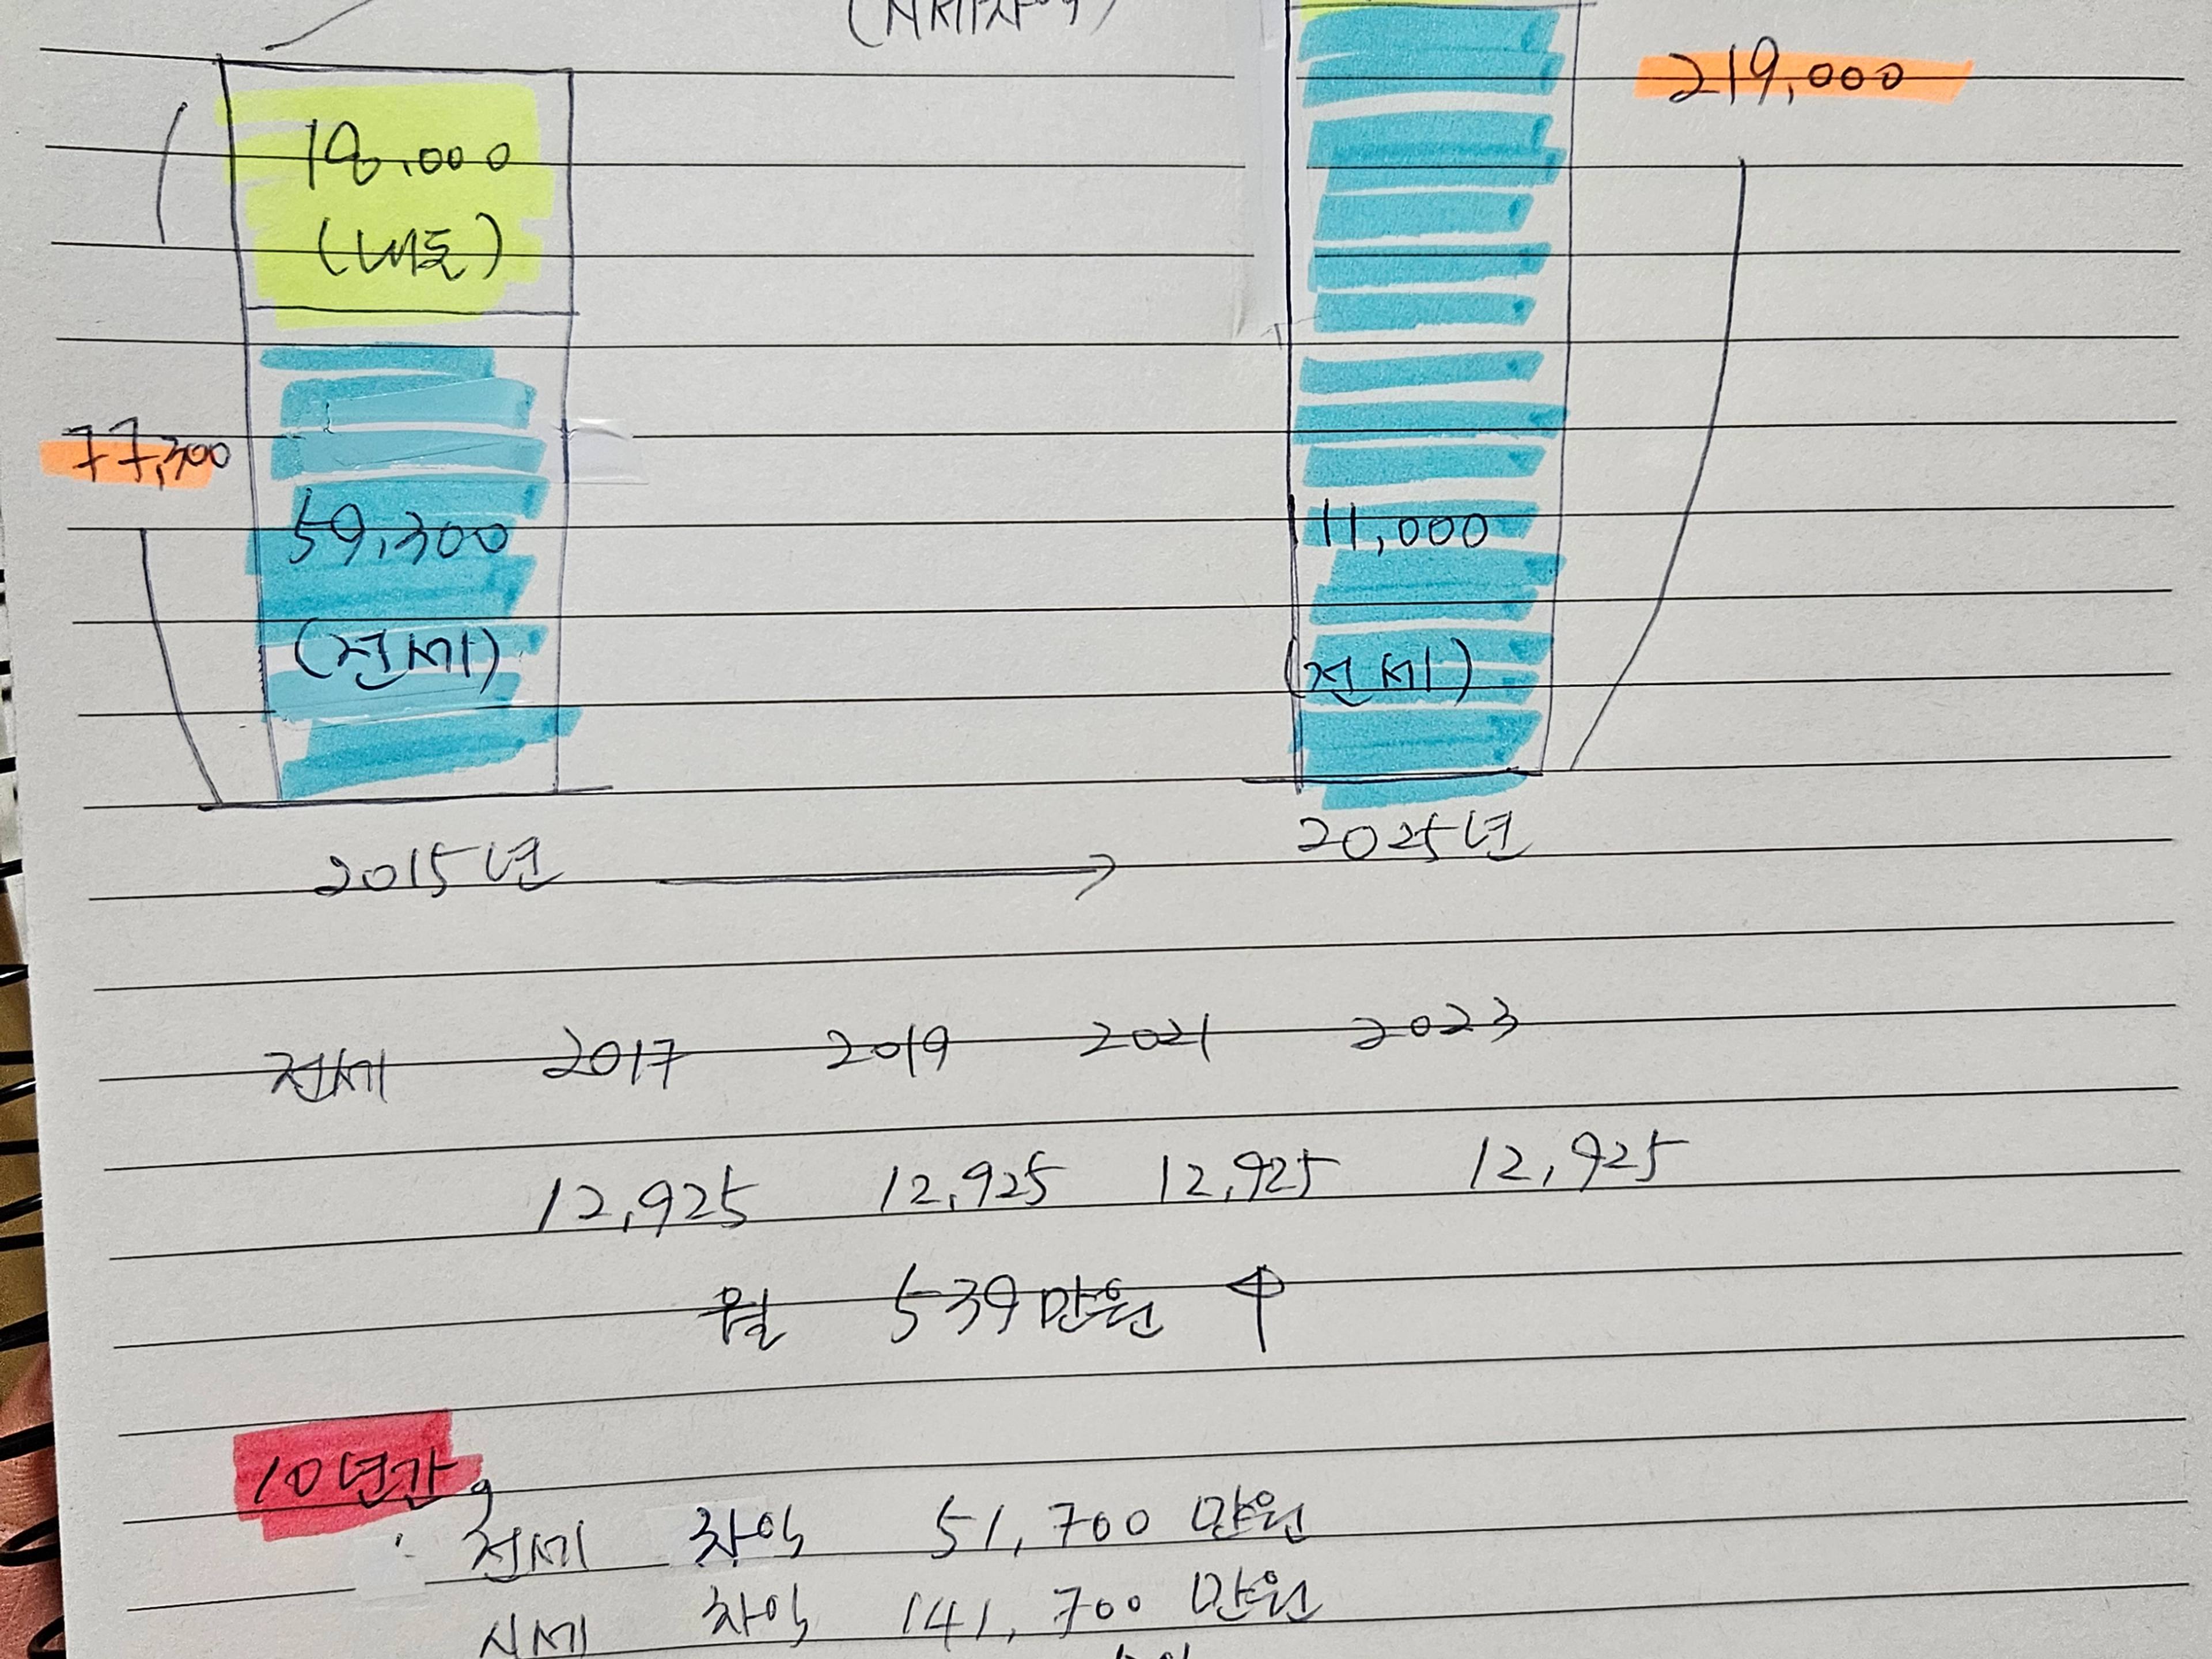 (시세차익)
219,000
18,000
(내돈)
77,300
59,300
(전세)
111,000
(전세)
2015년 → 2025년
전세 2017 2019 2021 2023
12,925 12,925 12,925 12,925
월 539만원 ↑
10년간,
전세 차익 51,700 만원
시세 차익 141,700 만원